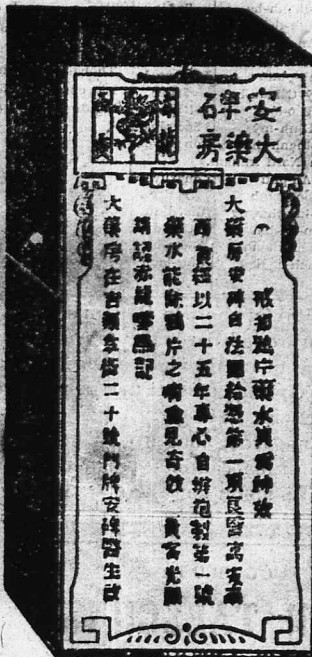 安碑石
大藥房
戒都鴉片藥水真舊神效
大藥房安碑自法國給憑第一項良醫高安南
西貢經以二十五年專心自辦炮製第一號
藥水能除鴉片之嗜盒見奇效 貴客光顧
請認赤龍嘜為記
大藥房在吉顛拿街二十號門牌安碑醫生啟